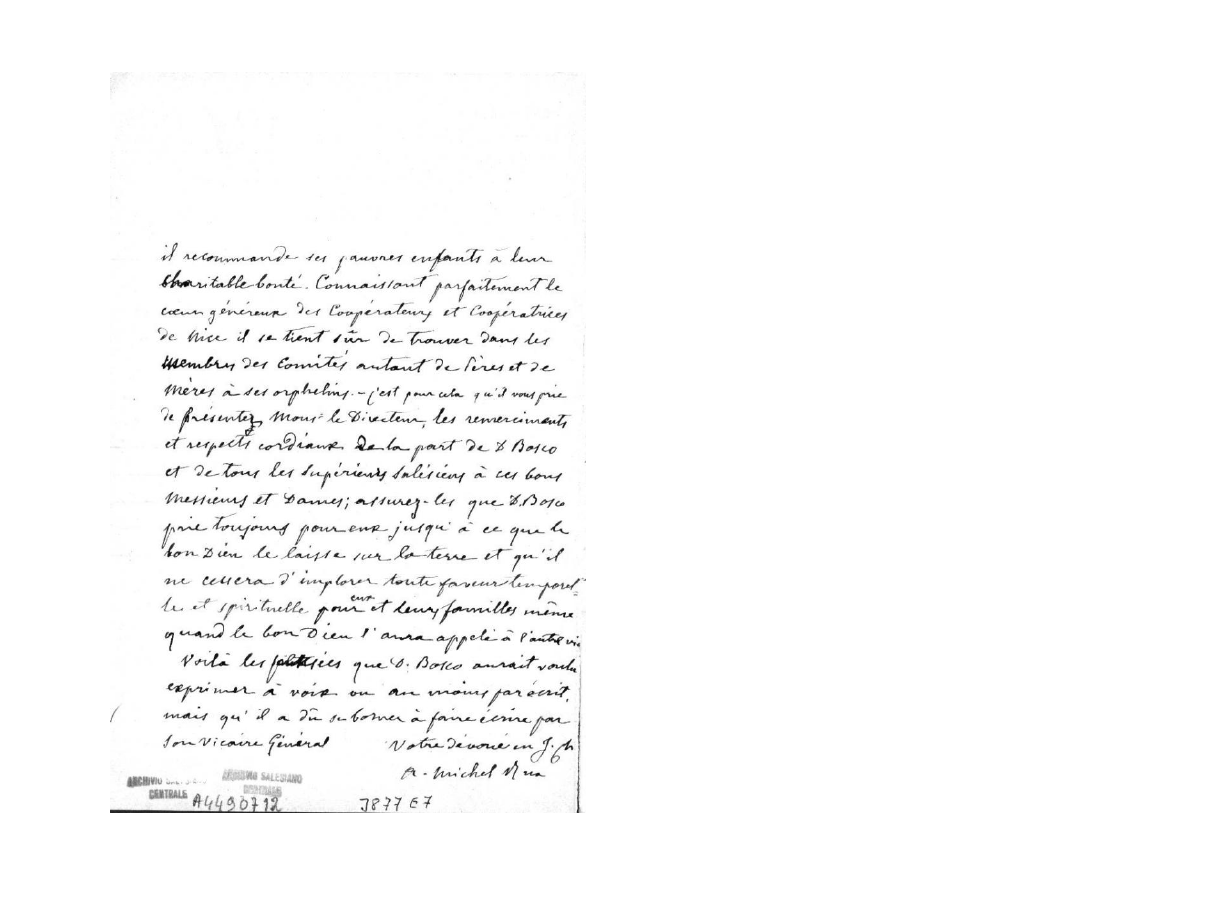 il recommande ses pauvres enfants à leur
charitable bonté. Connaissant parfaitement le
cœur généreux des Coopérateurs et Coopératrices
de Nice il se tient sûr de trouver dans les
membres des Comités autant de Pères et de
Mères à ses orphelins. - c'est pour cela qu'il vous prie
de présenter, Mons.r le Directeur, les remerciments
et respects cordiaux de la part de D Bosco
et de tous les supérieurs salésiens à ces bons
Messieurs et Dames; assurez-les que D. Bosco
prie toujours pour eux jusqu'à ce que le
bon Dieu le laisse sur la terre et qu'il
ne cessera d'implorer toute faveur temporel=
le et spirituelle pour eux et leurs familles même
quand le bon Dieu l'aura appelé à l'autre vie
Voilà les pensées que D. Bosco aurait voulu
exprimer à voix ou au moins par écrit,
mais qu'il a dû se borner à faire écrire par
son Vicaire Général Votre dévoué en J. Ch
A. Michel Rua
ARCHIVIO SALESIANO
ARCHIVIO CENTRALE
A4490712 3877 E7